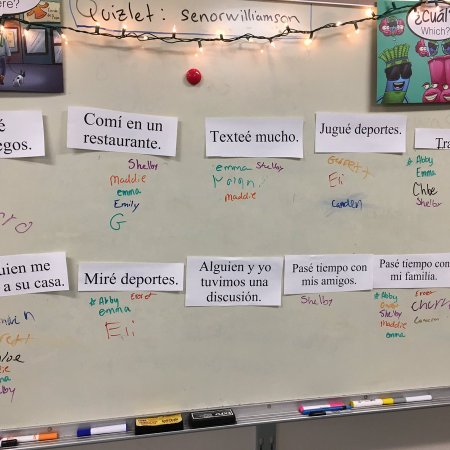 Quizlet: senorwilliamson
¿Cuál
Which?
Comí en un
restaurante.
Texteé mucho.
Jugué deportes.
egos.
Shelby
Maddie
emma
Emily
G
emma Shelby
Maddie
Garrett
Eli
Camden
#Abby
Emma
Chloe
Shelby
uien me
a su casa.
Miré deportes.
Alguien y yo
tuvimos una
discusión.
Pasé tiempo con
mis amigos.
Pasé tiempo con
mi familia.
#Abby
emma
Eli
Shelby
#Abby
Shelby
Maddie
emma
Cameron